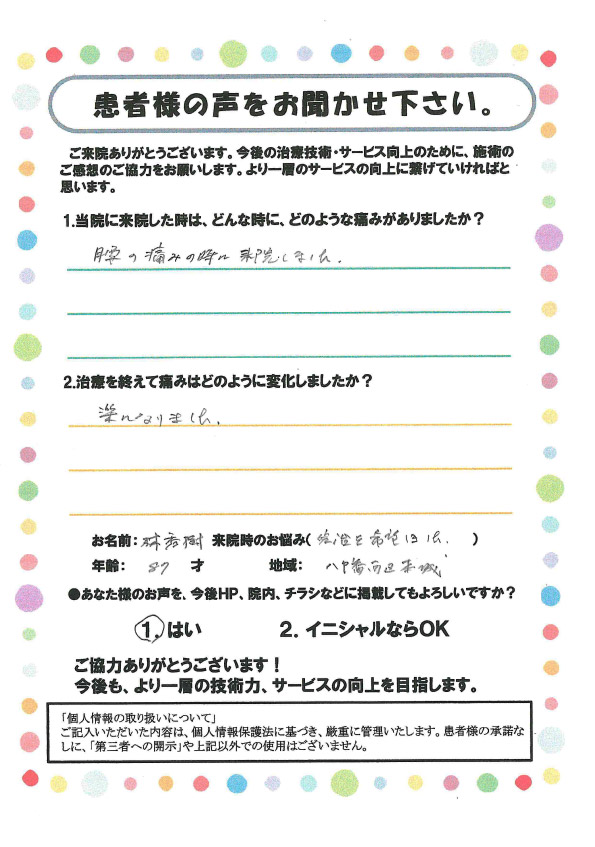 患者様の声をお聞かせ下さい。
ご来院ありがとうございます。今後の治療技術・サービス向上のために、施術の
ご感想のご協力をお願いします。より一層のサービスの向上に繋げていければと
思います。
1.当院に来院した時は、どんな時に、どのような痛みがありましたか？
腰の痛みの時に来院しました.
2.治療を終えて痛みはどのように変化しましたか？
楽になりました.
お名前: 林秀樹 来院時のお悩み( を希望 )
年齢: 87 才 地域: 八幡西区本城
●あなた様のお声を、今後HP、院内、チラシなどに掲載してもよろしいですか？
1. はい 2. イニシャルならOK
ご協力ありがとうございます！
今後も、より一層の技術力、サービスの向上を目指します。
「個人情報の取り扱いについて」
ご記入いただいた内容は、個人情報保護法に基づき、厳重に管理いたします。患者様の承諾な
しに、「第三者への開示」や上記以外での使用はございません。